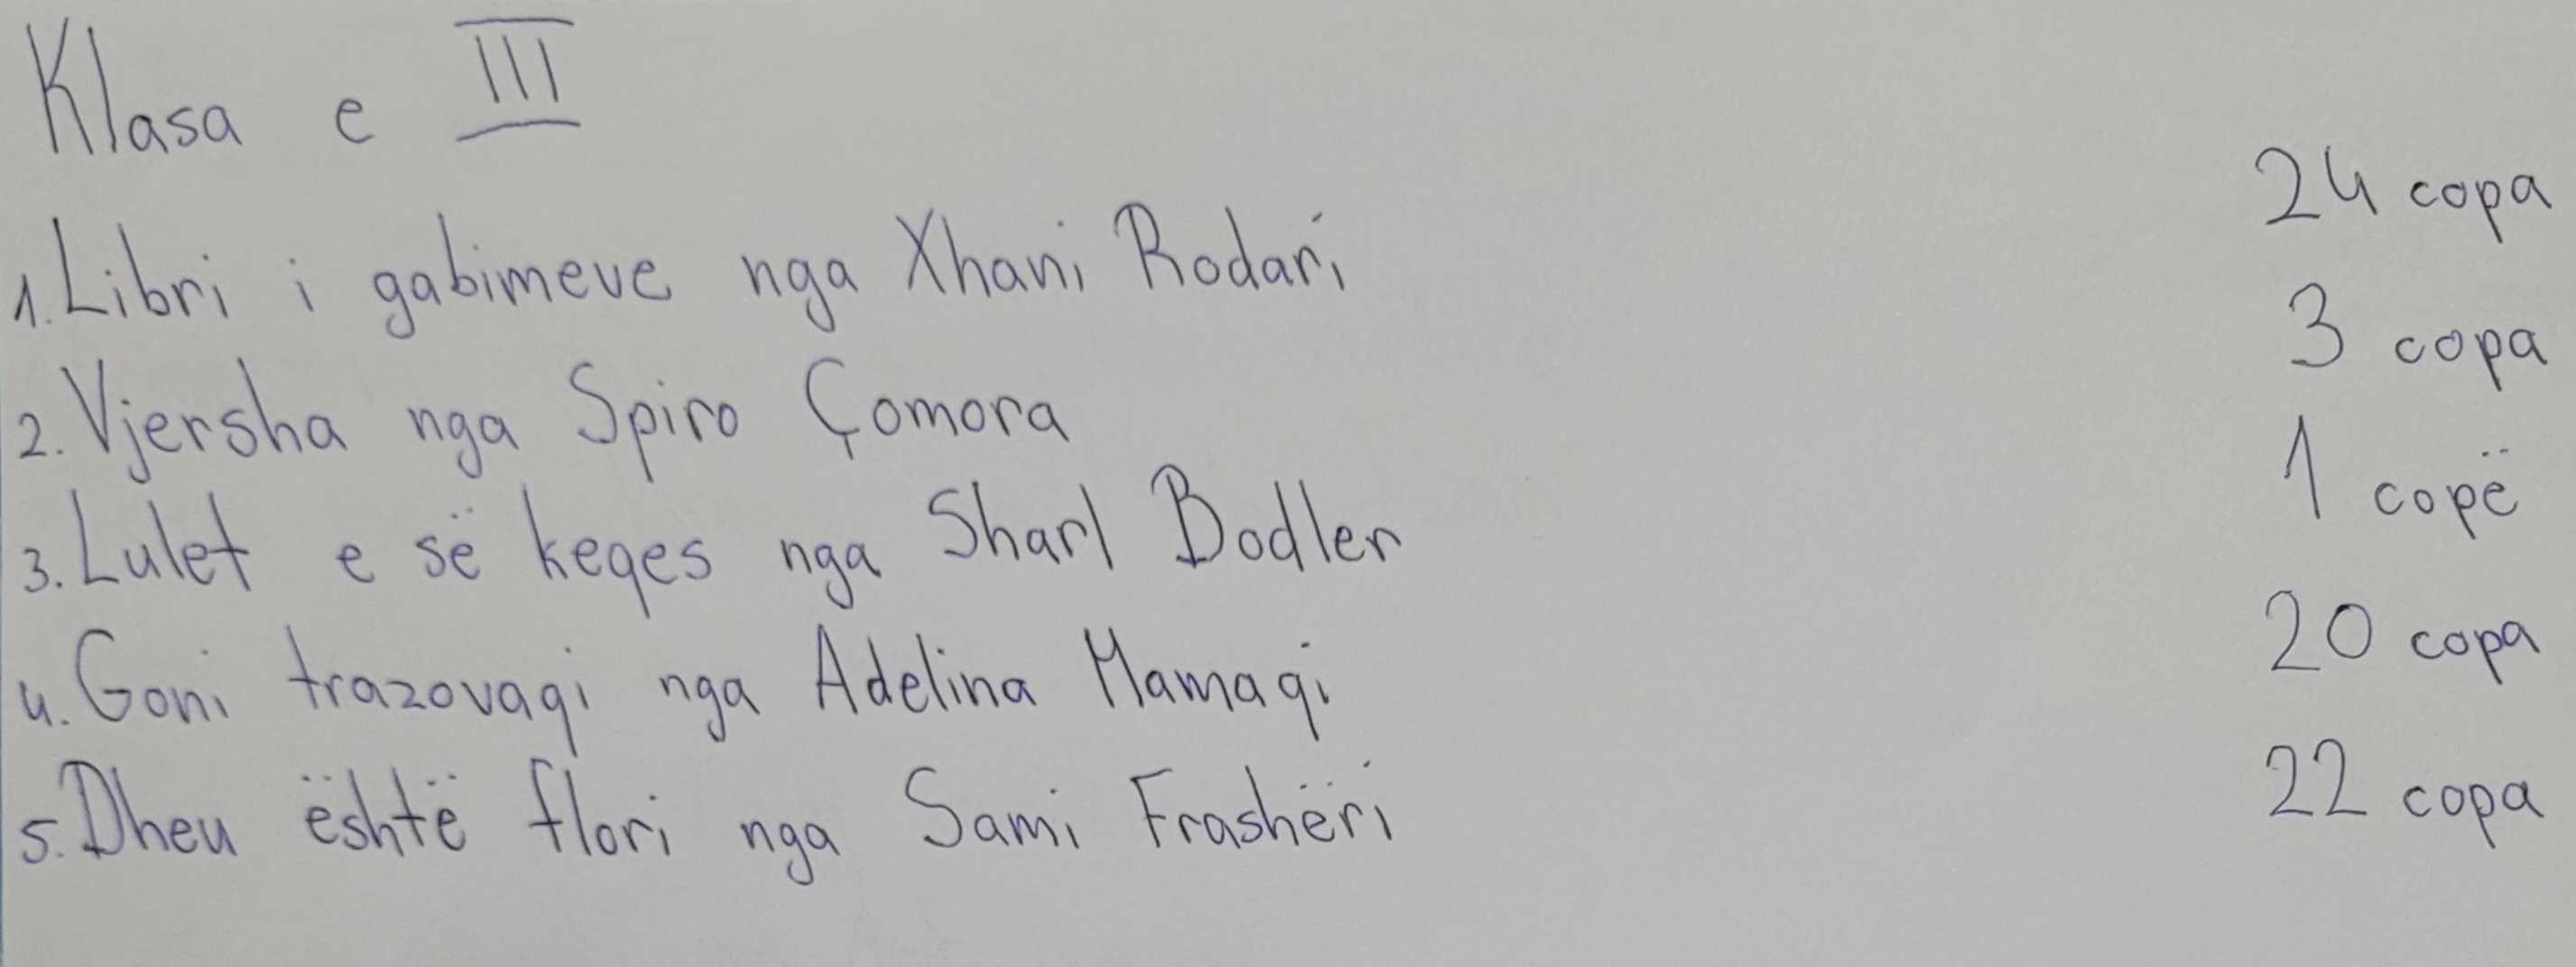 Klasa e III
1. Libri i gabimeve nga Xhani Rodari 24 copa
2. Vjersha nga Spiro Çomora 3 copa
3. Lulet e së keqes nga Sharl Bodler 1 copë
4. Goni trazovaqi nga Adelina Mamaqi 20 copa
5. Dheu është flori nga Sami Frashëri 22 copa